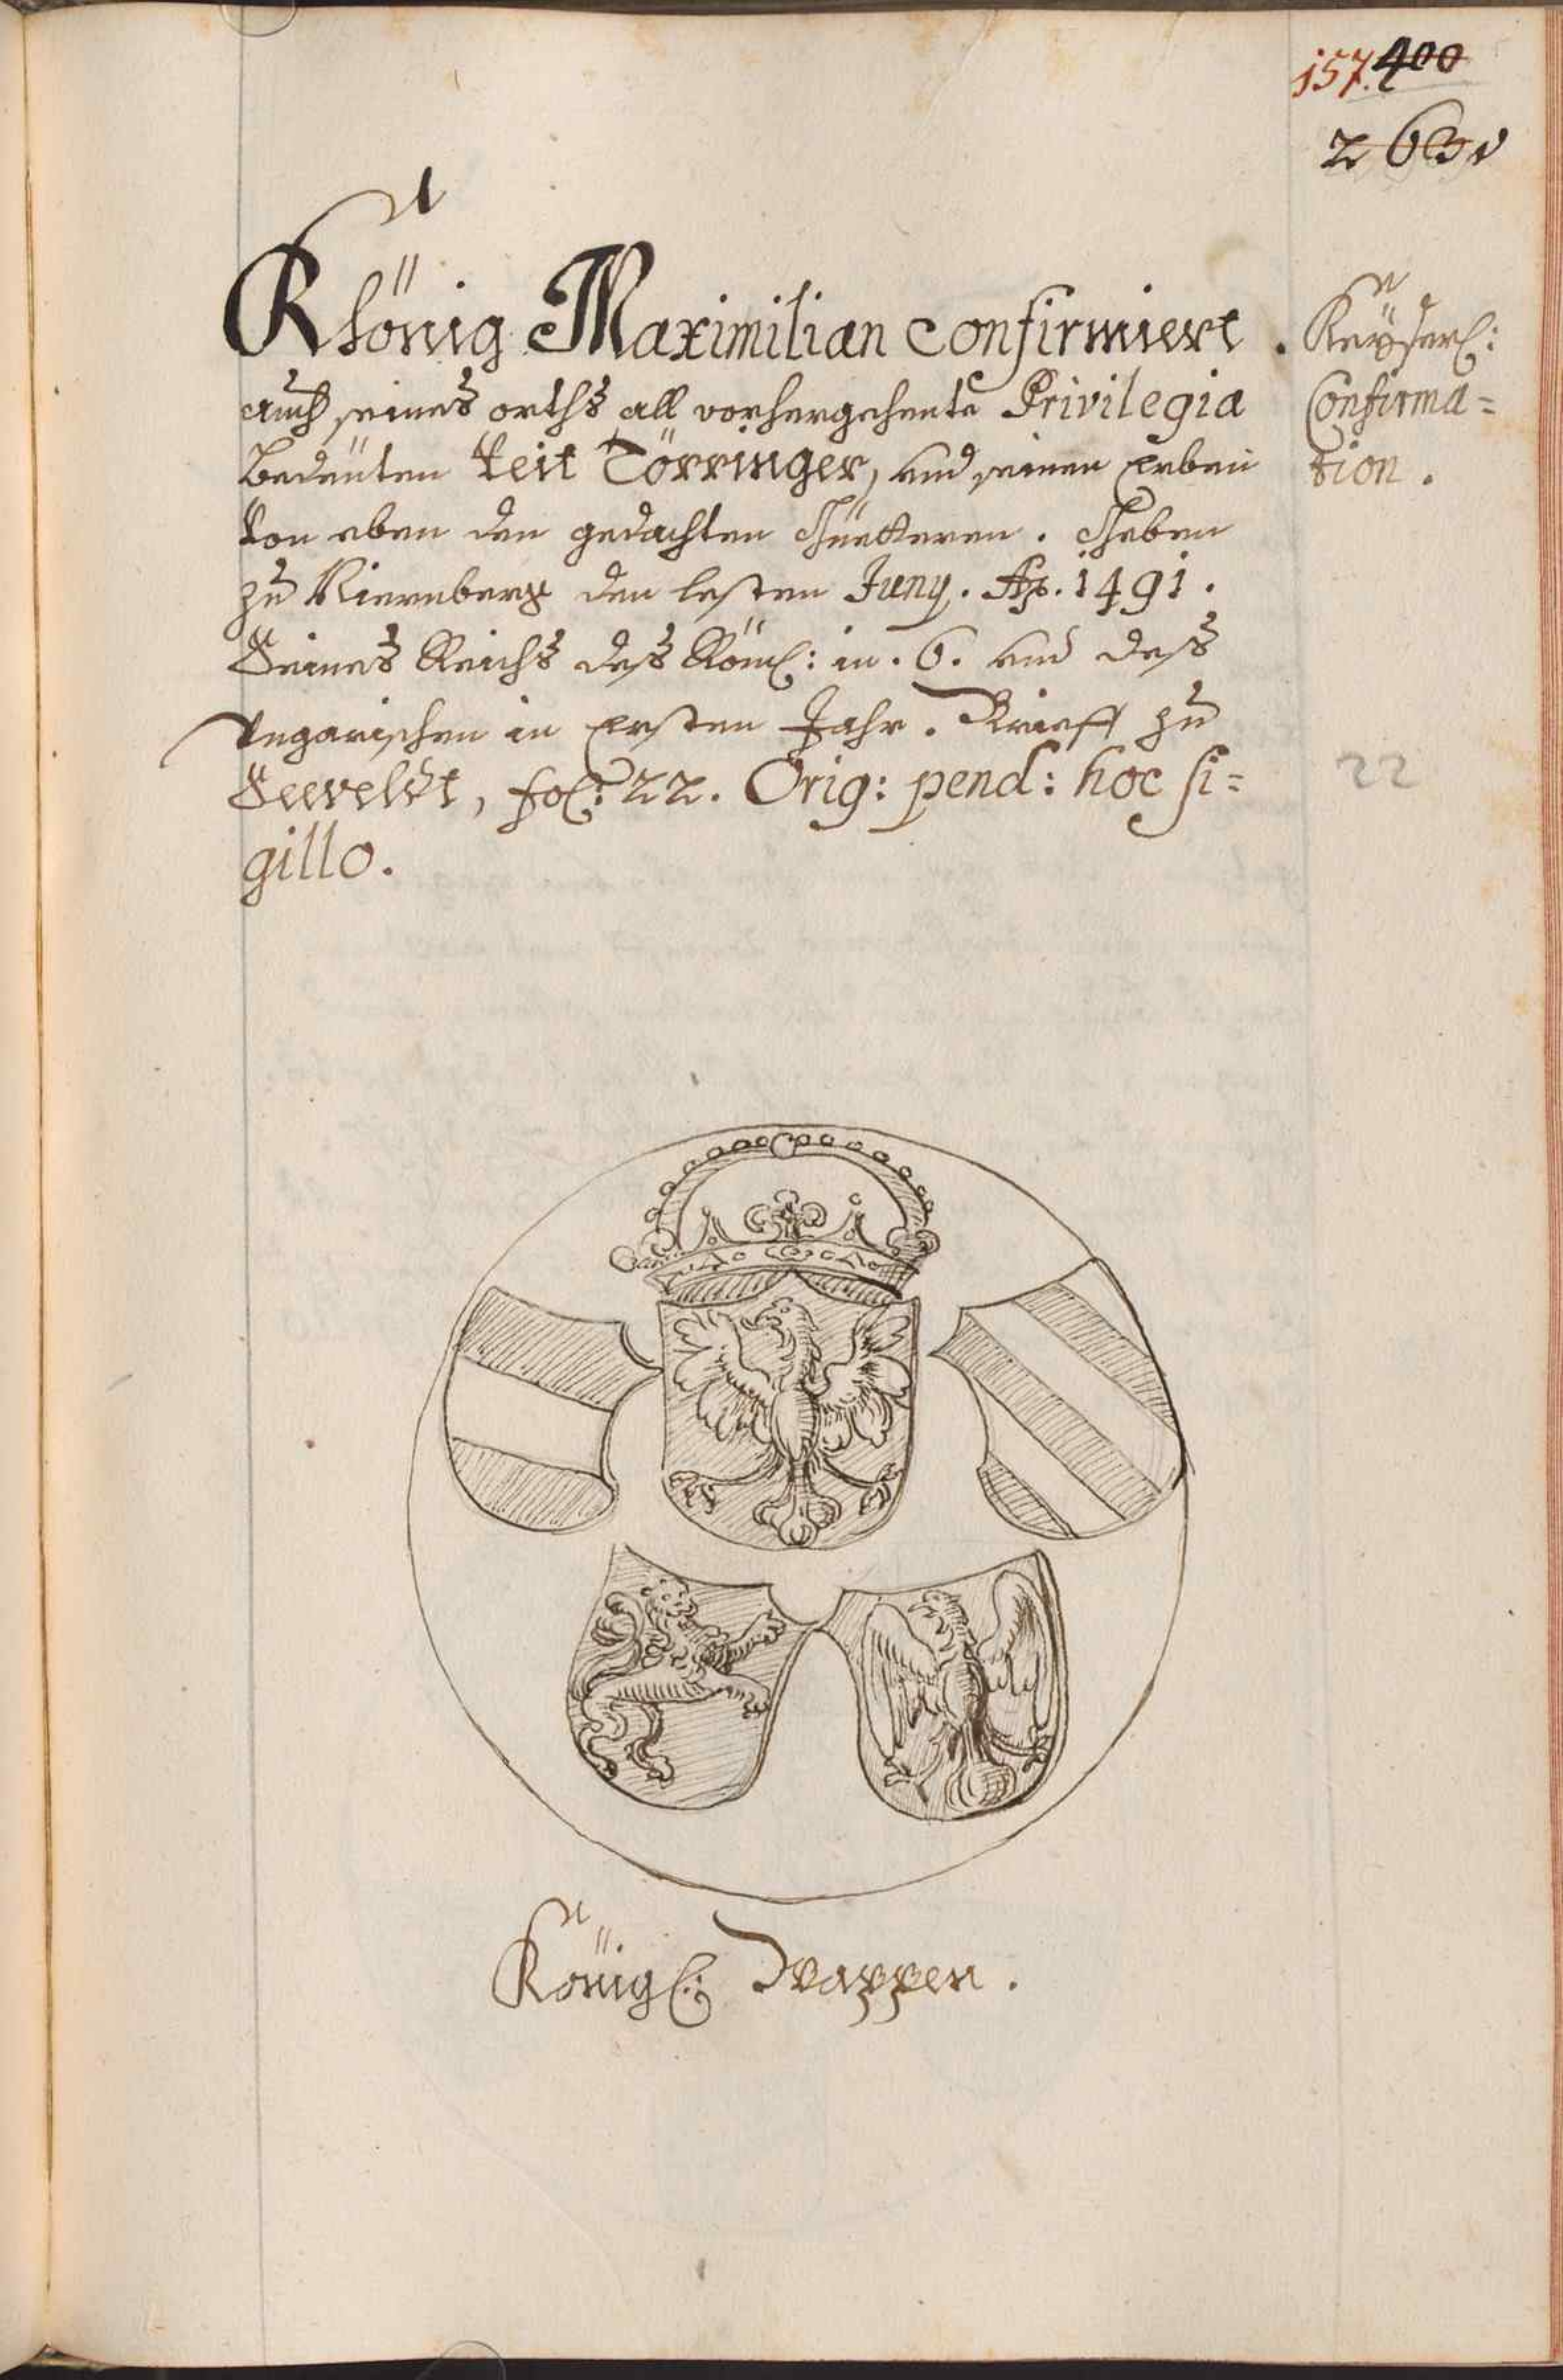 157. 400
263v
Khönig Maximilian confirmiert.
auch seines orths all vorhergehente Privilegia
Bedeüten Veit Törringer, und seinen Erben
Von eben den gedachten Güetteren. Geben
zu Niernberg den lesten Juny. Ao. 1491.
Seines Reichs des Röml: in. 6. und dess
Ungarischen in Ersten Jahr. Brieff zu
Seeveldt, fol: 22. Orig: pend: hoc si=
gillo.
Keÿserl:
Confirma=
tion.
22
Königl: Wappen.